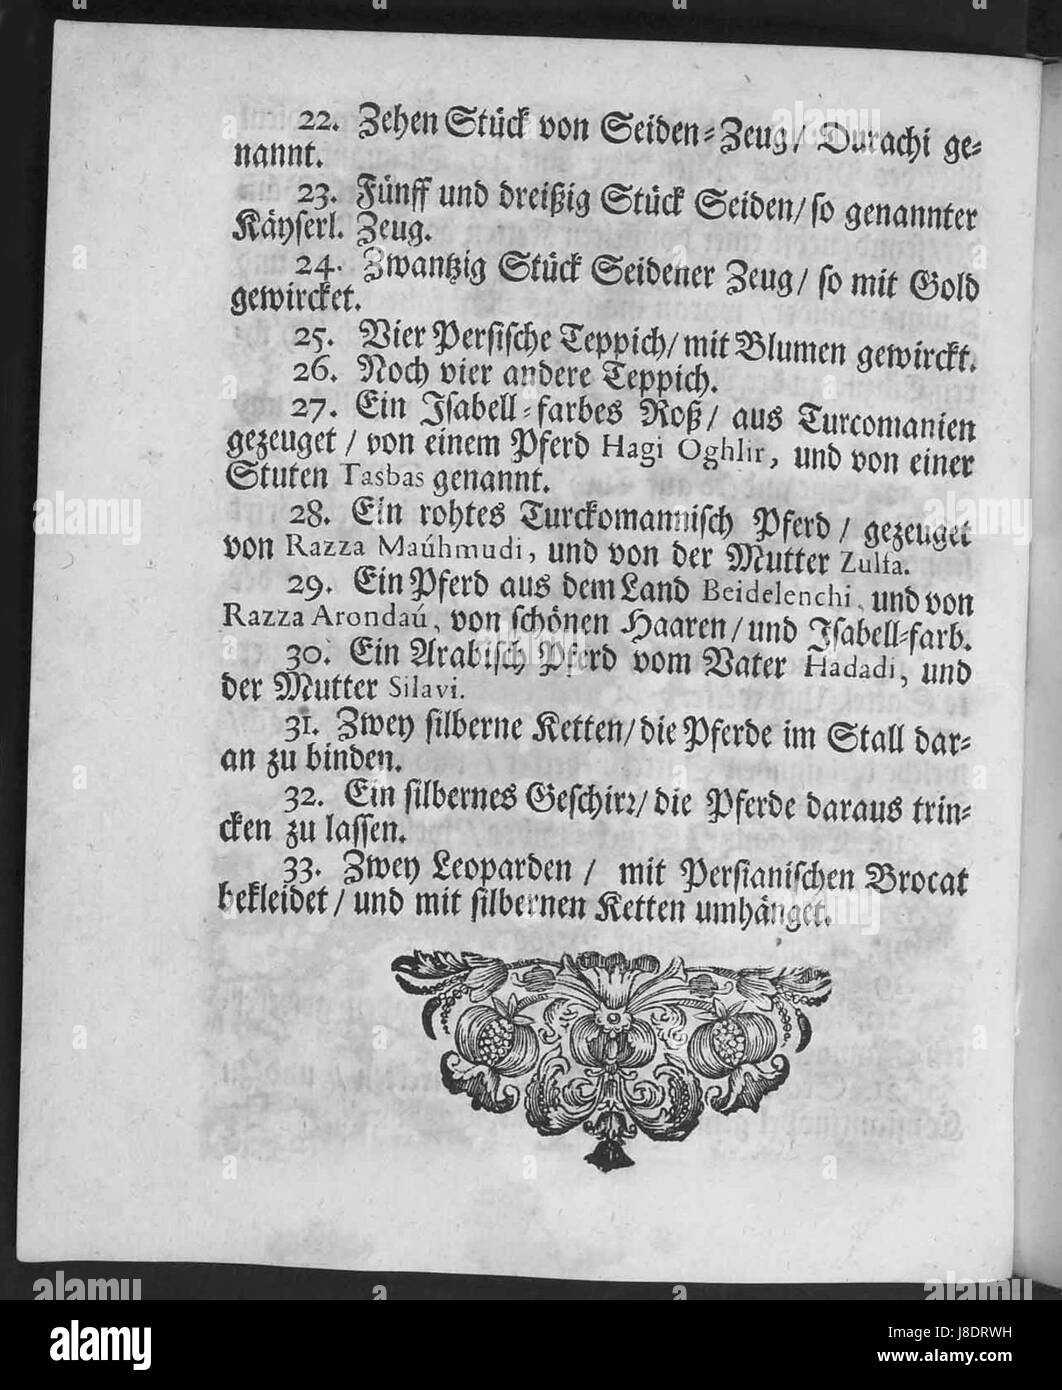 22. Zehen Stück von Seiden-Zeug/ Durachi ge-
nannt.
23. Fünff und dreißig Stück Seiden/ so genannter
Käyserl. Zeug.
24. Zwantzig Stück Seidener Zeug/ so mit Gold
gewircket.
25. Vier Persische Teppich/ mit Blumen gewirckt.
26. Noch vier andere Teppich.
27. Ein Isabell-farbes Roß/ aus Turcomanien
gezeuget / von einem Pferd Hagi Oghlir, und von einer
Stuten Tasbas genannt.
28. Ein rohtes Turckomannisch Pferd / gezeuget
von Razza Maúhmudi, und von der Mutter Zulfa.
29. Ein Pferd aus dem Land Beidelenchi, und von
Razza Arondaú, von schönen Haaren/ und Isabell-farb.
30. Ein Arabisch Pferd vom Vater Hadadi, und
der Mutter Silavi.
31. Zwey silberne Ketten/ die Pferde im Stall dar-
an zu binden.
32. Ein silbernes Geschirr/ die Pferde daraus trin-
cken zu lassen.
33. Zwey Leoparden / mit Persianischen Brocat
bekleidet / und mit silbernen Ketten umhänget.
alamy
Image ID: J8DRWH
www.alamy.com